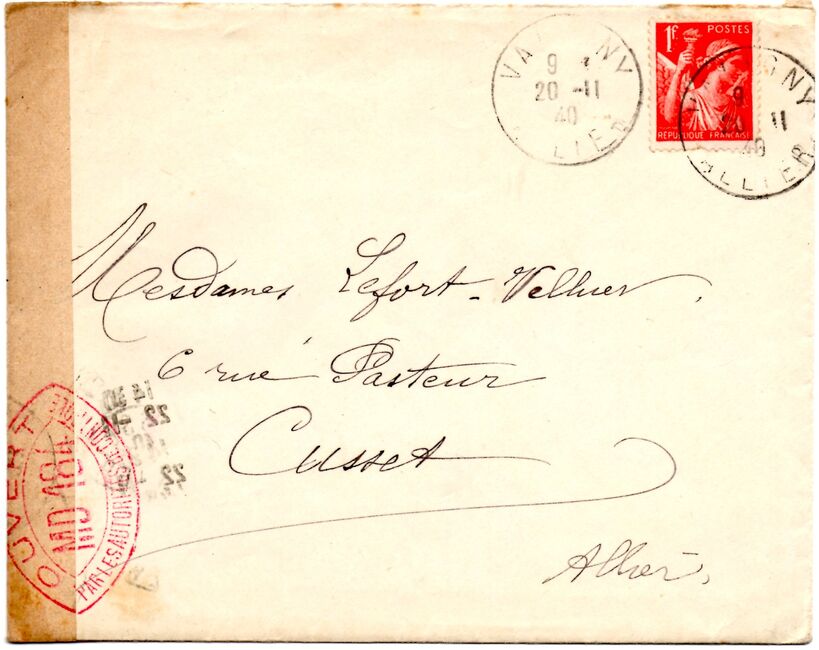 9
20 -11
40
ALLIER
1f. POSTES
RÉPUBLIQUE FRANÇAISE
9
11
40
ALLIER
Mesdames Lefort-Vellier.
6 rue Pasteur
Cusset
Allier.
OUVERT
PAR LES AUTORITÉS DE CONTRÔLE
22
40
22